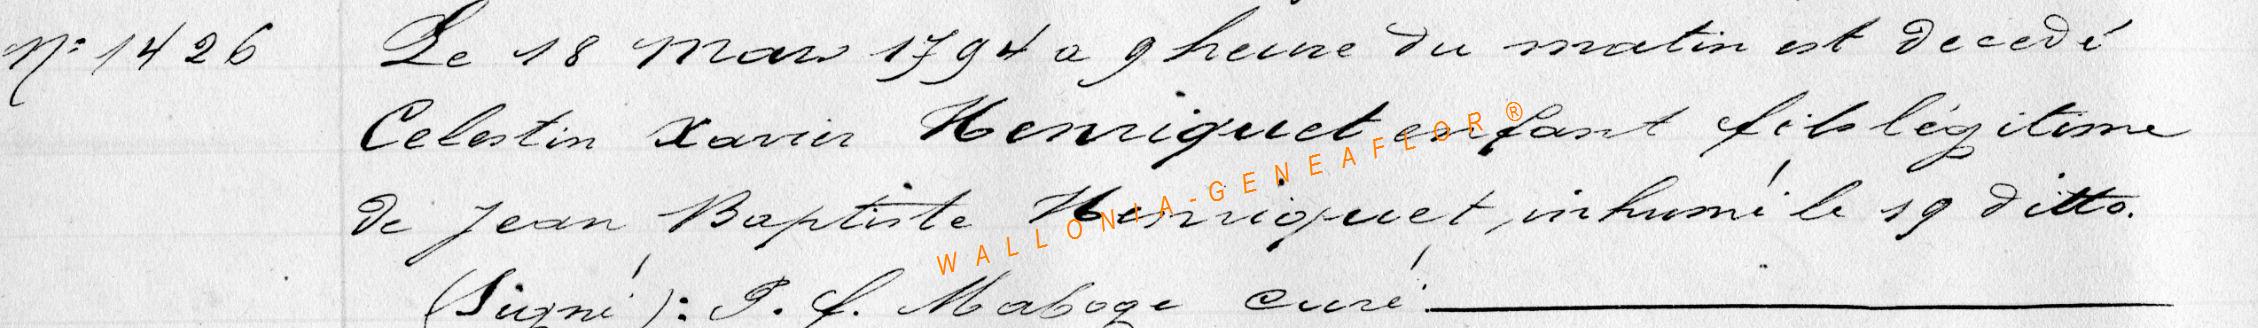 Nº 1426 Le 18 Mars 1794 a 9 heure du matin est decedé
Celestin Xavier Henriquet enfant fils légitime
de Jean Baptiste Henriquet, inhumé le 19 ditto.
(Signé): P. f. Maboge curé.
WALLONIA-GENEAFLOR®